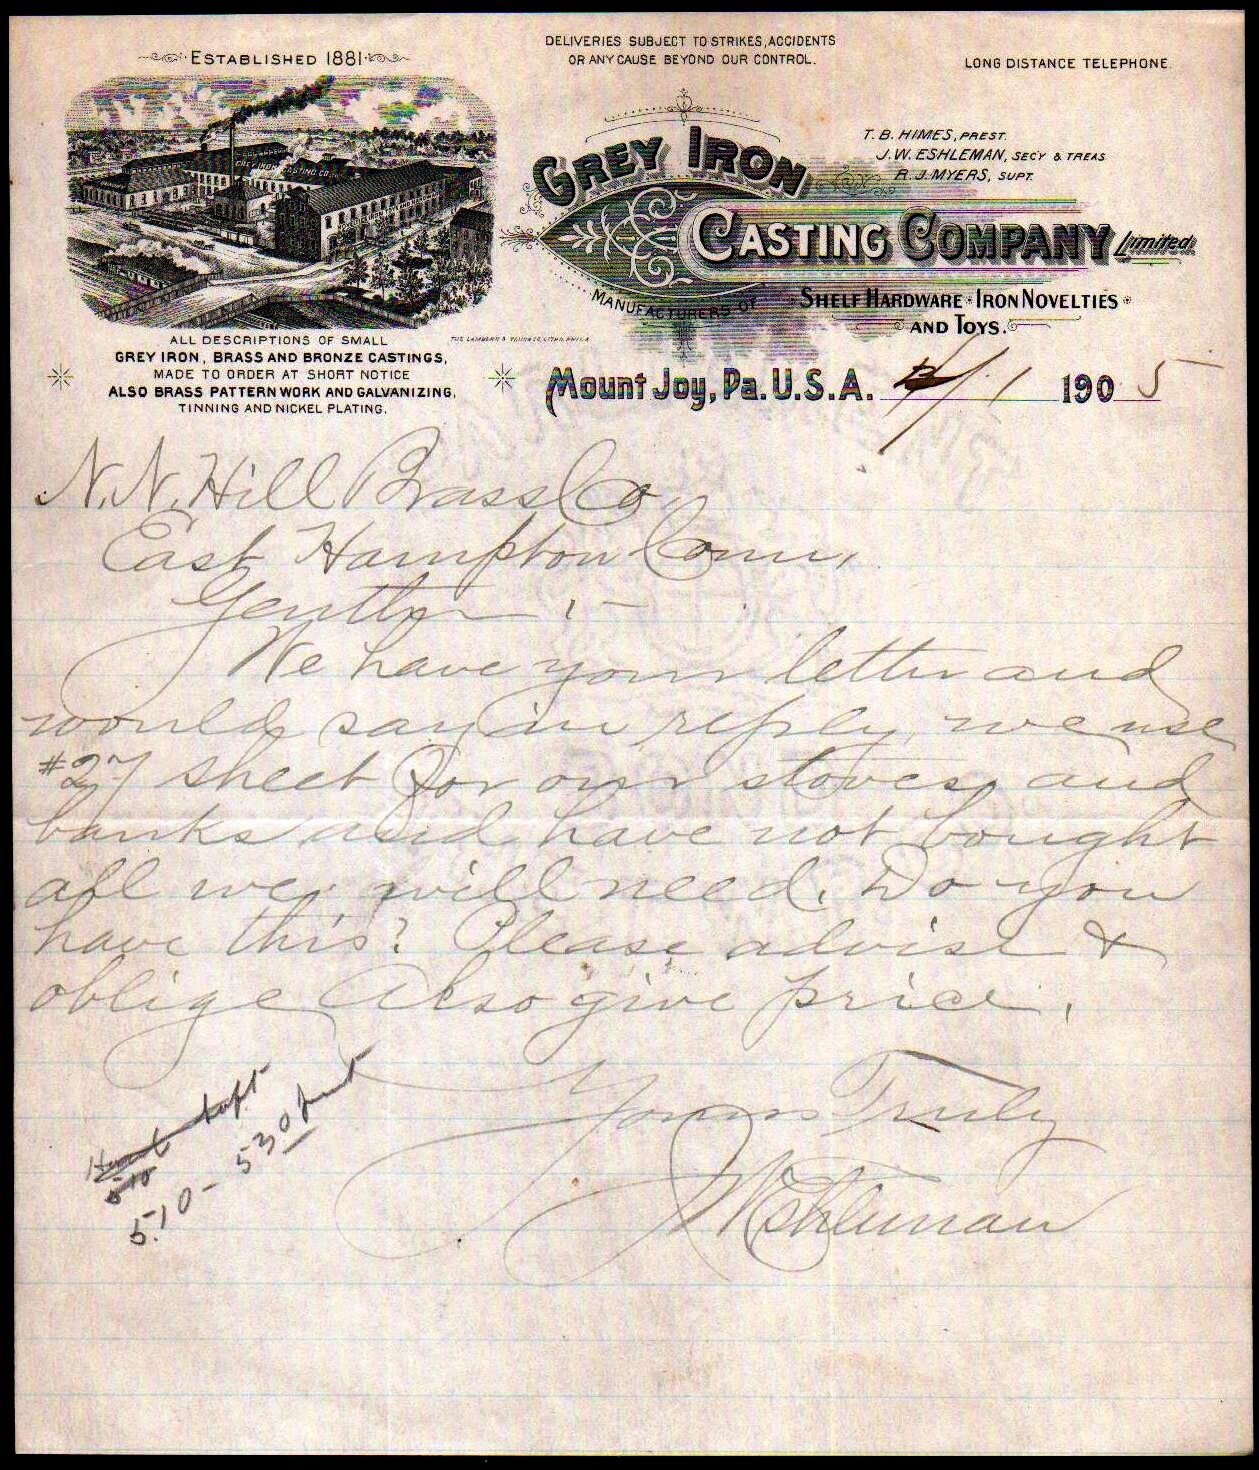 ESTABLISHED 1881
DELIVERIES SUBJECT TO STRIKES, ACCIDENTS
OR ANY CAUSE BEYOND OUR CONTROL.
LONG DISTANCE TELEPHONE.
T. B. HIMES, PREST.
J. W. ESHLEMAN, SEC'Y & TREAS
R. J. MYERS, SUPT.
GREY IRON CASTING CO.
GREY IRON
CASTING COMPANY Limited.
MANUFACTURERS OF SHELF HARDWARE * IRON NOVELTIES *
AND TOYS.
ALL DESCRIPTIONS OF SMALL
GREY IRON, BRASS AND BRONZE CASTINGS,
MADE TO ORDER AT SHORT NOTICE
ALSO BRASS PATTERN WORK AND GALVANIZING,
TINNING AND NICKEL PLATING.
Mount Joy, Pa. U.S.A. 1 1905
N. N. Hill Brass Co
East Hampton Conn,
Gentlm :-
We have your letter and
would say in reply, we use
#27 sheet for our stoves and
banks and have not bought
all we will need. Do you
have this? Please advise &
oblige Also give price.
Yours Truly
JW Eshleman
510
5.10 - 530